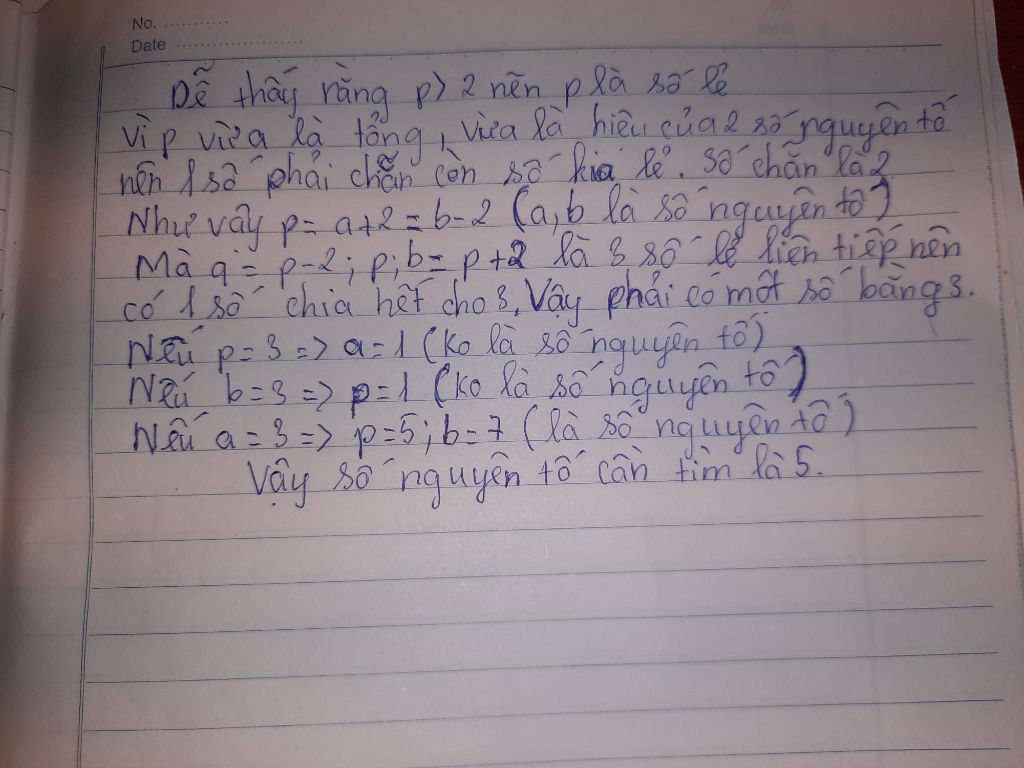 No. ...........
Date .....................
Dễ thấy rằng p > 2 nên p là số lẻ
Vì p vừa là tổng, vừa là hiệu của 2 số nguyên tố
nên 1 số phải chẵn còn số kia lẻ. Số chẵn là 2.
Như vậy p = a + 2 = b - 2 (a, b là số nguyên tố)
Mà a = p - 2; p; b = p + 2 là 3 số lẻ liên tiếp nên
có 1 số chia hết cho 3. Vậy phải có một số bằng 3.
Nếu p = 3 => a = 1 (ko là số nguyên tố)
Nếu b = 3 => p = 1 (ko là số nguyên tố)
Nếu a = 3 => p = 5; b = 7 (là số nguyên tố)
Vậy số nguyên tố cần tìm là 5.